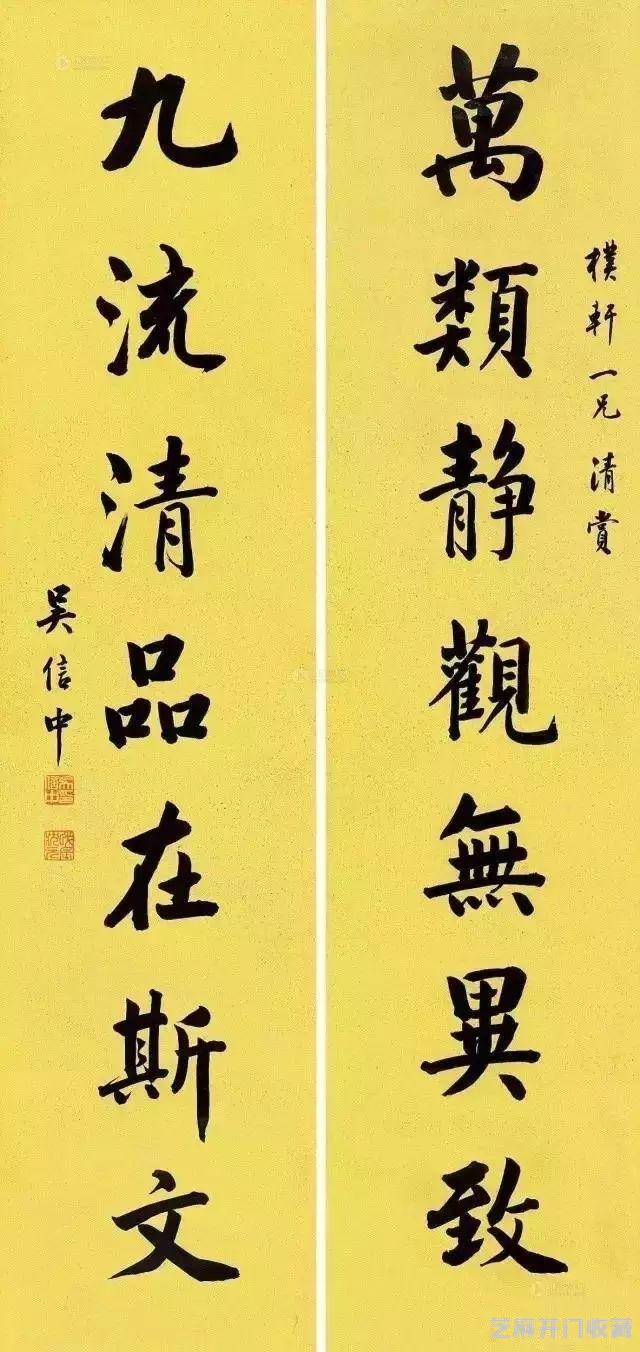 樸軒一兄清賞
萬類靜觀無異致
九流清品在斯文
吳信中
芝麻开门收藏